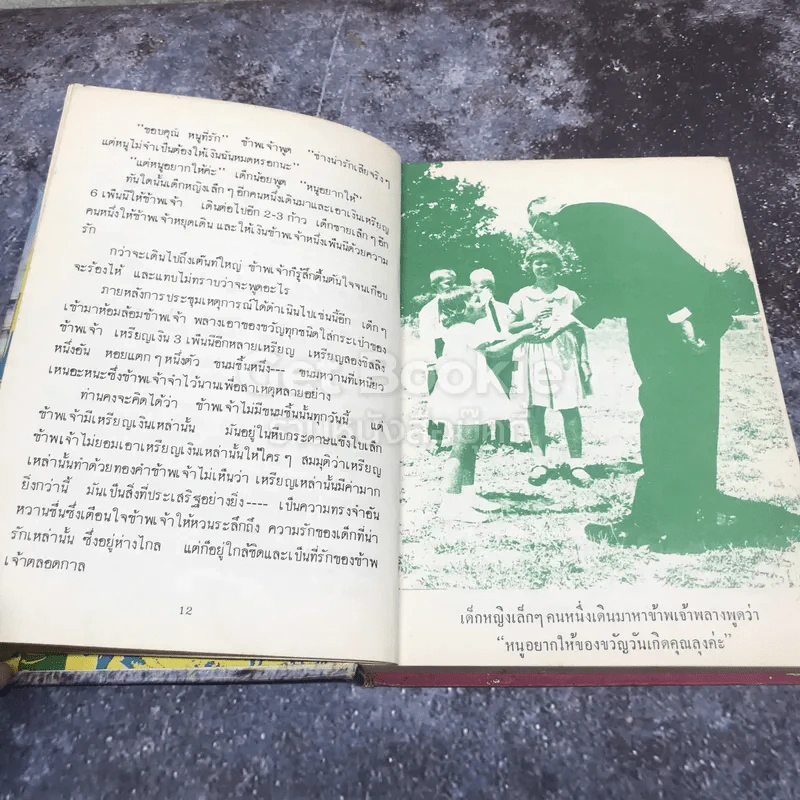 "ขอบคุณ หนูที่รัก" ข้าพเจ้าพูด "ช่างน่ารักเสียจริงๆ
แต่หนูไม่จำเป็นต้องให้เงินฉันหมดหรอกนะ"
"แต่หนูอยากให้ค่ะ" เด็กน้อยพูด "หนูอยากให้"
ทันใดนั้นเด็กหญิงเล็กๆ อีกคนหนึ่งเดินมาและเอาเงินเหรียญ
6 เพ็นนีให้ข้าพเจ้า เดินต่อไปอีก 2-3 ก้าว เด็กชายเล็กๆ อีก
คนหนึ่งให้ข้าพเจ้าหยุดเดิน และให้เงินข้าพเจ้าหนึ่งเพ็นนีด้วยความ
รัก
กว่าจะเดินไปถึงเต๊นท์ใหญ่ ข้าพเจ้าก็รู้สึกตื้นตันใจจนเกือบ
จะร้องไห้ และแทบไม่ทราบว่าจะพูดอะไร
ภายหลังการประชุมเหตุการณ์ได้ดำเนินไปเช่นนี้อีก เด็กๆ
เข้ามาห้อมล้อมข้าพเจ้า พลางเอาของขวัญทุกชนิดใส่กระเป๋าของ
ข้าพเจ้า เหรียญเงิน 3 เพ็นนีอีกหลายเหรียญ เหรียญสองชิลลิง
หนึ่งอัน หอยแตกๆ หนึ่งตัว ขนมชิ้นหนึ่ง---- ขนมหวานที่เหนียว
เหนอะหนะซึ่งข้าพเจ้าจำไว้นานเพื่อสาเหตุหลายอย่าง
ท่านคงจะคิดได้ว่า ข้าพเจ้าไม่มีขนมชิ้นนั้นทุกวันนี้ แต่
ข้าพเจ้ามีเหรียญเงินเหล่านั้น มันอยู่ในหีบกระดาษแข็งใบเล็ก
ข้าพเจ้าไม่ยอมเอาเหรียญเงินเหล่านั้นให้ใครๆ สมมุติว่าเหรียญ
เหล่านั้นทำด้วยทองคำข้าพเจ้าไม่เห็นว่า เหรียญเหล่านั้นมีค่ามาก
ยิ่งกว่านี้ มันเป็นสิ่งที่ประเสริฐอย่างยิ่ง---- เป็นความทรงจำอัน
หวานชื่นซึ่งเตือนใจข้าพเจ้าให้หวนระลึกถึง ความรักของเด็กที่น่า
รักเหล่านั้น ซึ่งอยู่ห่างไกล แต่ก็อยู่ใกล้ชิดและเป็นที่รักของข้าพ
เจ้าตลอดกาล
12
เด็กหญิงเล็กๆ คนหนึ่งเดินมาหาข้าพเจ้าพลางพูดว่า
"หนูอยากให้ของขวัญวันเกิดคุณลุงค่ะ"
Get Bookie
ร้านหนังสือเก็ทบุ๊คกี้